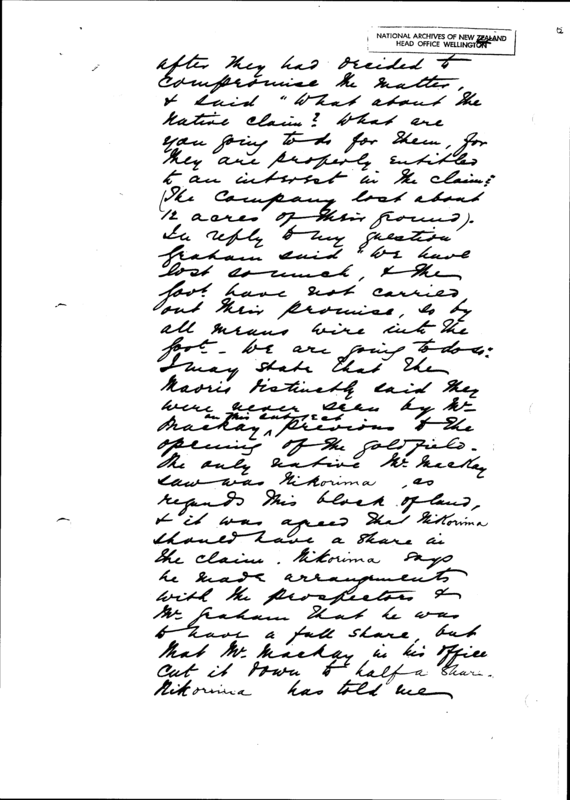 NATIONAL ARCHIVES OF NEW ZEALAND
HEAD OFFICE WELLINGTON
after they had decided to
compromise the matter,
& said "What about the
native claim? What are
you going to do for them, for
they are properly entitled
to an interest in the claim?
(The Company lost about
12 acres of their ground).
In reply to my question
Graham said "We have
lost so much, & the
Govt have not carried
out their promise, so by
all means wire into the
Govt - We are going to do so:
I may state that the
Maoris distinctly said they
were never seen by Mr
on this subject
Mackay, previous to the
opening of the goldfield.
The only native Mr Mackay
saw was Nikorima, as
regards this block of land,
& it was agreed that Nikorima
should have a share in
the claim. Nikorima says
he made arrangements
with the prospectors &
Mr Graham that he was
to have a full share, but
that Mr Mackay in his office
cut it down to half a share.
Nikorima has told me